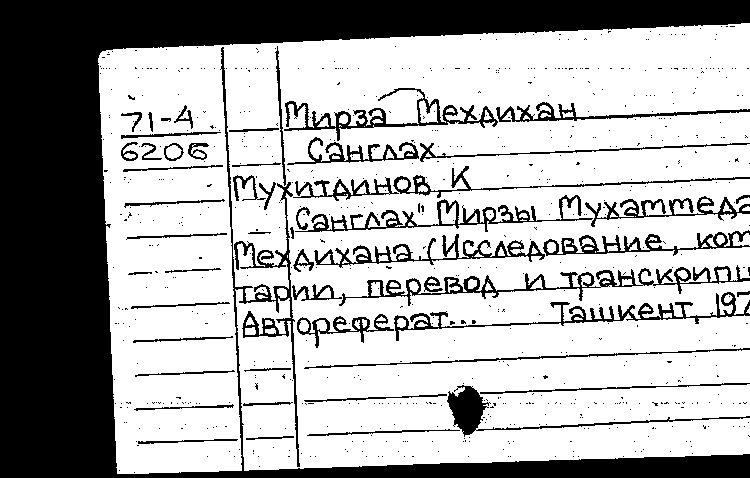 71-4 Мирза Мехдихан
6206 Санглах.
Мухитдинов, К
„Санглах" Мирзы Мухаммеда
Мехдихана. (Исследование, ком
тарии, перевод и транскрипц
Автореферат... Ташкент, 197